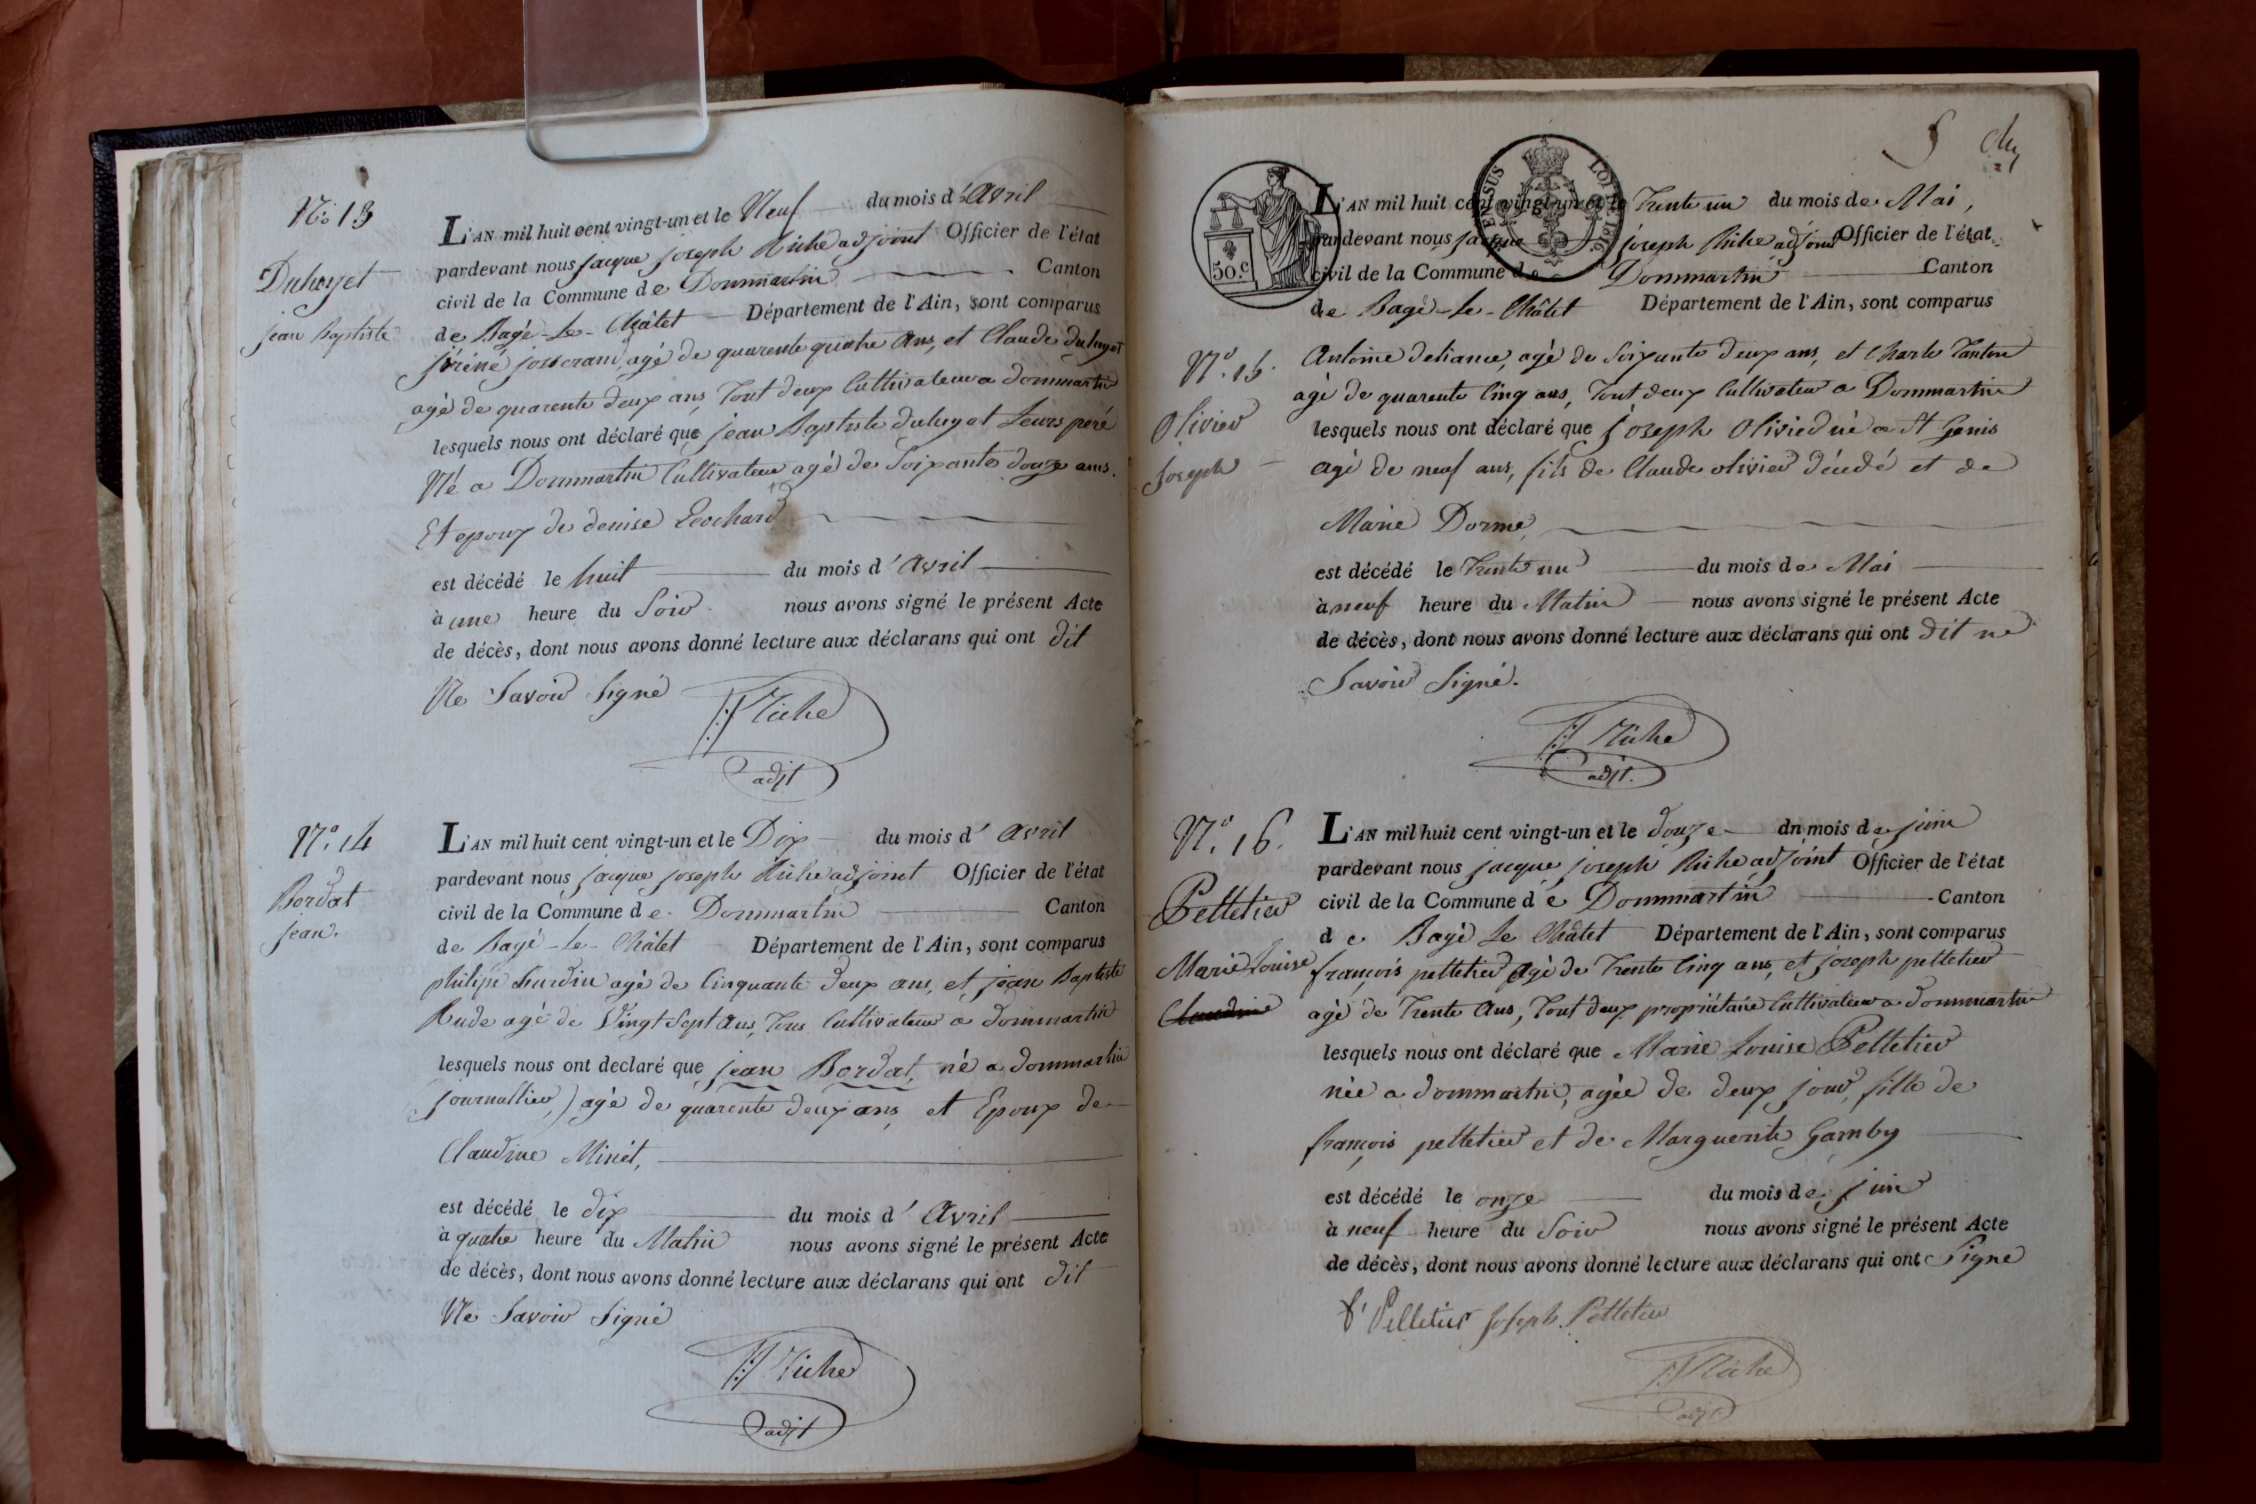 N.o 13
Duhuyet
jean Baptiste
L'AN mil huit cent vingt-un et le Neuf du mois d'Avril
pardevant nous jacque joseph Riche adjoint Officier de l'état
civil de la Commune de Dommartin Canton
de Bagé-Le-Châtel Département de l'Ain, sont comparus
agé de quarente quatre Ans, et Claude duhuyet
agé de quarente deux ans, Tout deux Cultivateur a dommartin
lesquels nous ont déclaré que jean Baptiste duhuyet Leurs peré
Né a Dommartin Cultivateur agé de Soixante douze ans.
Et epoux de denise
est décédé le huit du mois d'Avril
à une heure du Soir nous avons signé le présent Acte
de décès, dont nous avons donné lecture aux déclarans qui ont dit
Ne Savoir Signé
Riche
adjt
N.o 14
Bordat
jean.
L'AN mil huit cent vingt-un et le Dix du mois d'avril
pardevant nous jacque joseph Riche adjoint Officier de l'état
civil de la Commune de Dommartin Canton
de Bagé-le-Châtel Département de l'Ain, sont comparus
philipe agé de Cinquante deux ans, et jean Baptiste
Rude agé de Vingt Sept Ans, Tous Cultivateur a dommartin
lesquels nous ont declaré que jean Bordat, né a dommartin
journallier,) agé de quarente deux ans, et Epoux de
Claudine Minét,
est décédé le dix du mois d'Avril
à quatre heure du Matin nous avons signé le présent Acte
de décès, dont nous avons donné lecture aux déclarans qui ont dit
Ne Savoir Signé
Riche
adjt
5
50.c
LOI DE 1816
L'AN mil huit cent vingt-un et le Trente un du mois de Mai,
pardevant nous jacque joseph Riche adjoint Officier de l'état
civil de la Commune de Dommartin Canton
de Bagé-le-Châtel Département de l'Ain, sont comparus
N.o 15.
Olivier
Joseph
Antoine deliance, agé de Soixante deux ans, et Charle Tantin
agé de quarente Cinq ans, Tout deux Cultivateur a Dommartin
lesquels nous ont déclaré que joseph Olivier né a St Genis
agé de neuf ans, fils de Claude olivier décédé et de
Marie Dorme,
est décédé le Trente un du mois de Mai
à neuf heure du Matin nous avons signé le présent Acte
de décès, dont nous avons donné lecture aux déclarans qui ont dit ne
Savoir Signé.
Riche
adjt.
N.o 16.
Pelletier
Marie Louise
Claudine
L'AN mil huit cent vingt-un et le douze dn mois de juin
pardevant nous jacque joseph Riche adjoint Officier de l'état
civil de la Commune de Dommartin Canton
de Bagé Le Châtel Département de l'Ain, sont comparus
françois pelletier agé de Trente Cinq ans, et joseph pelletier
agé de Trente Ans, Tout deux propriétaire Cultivateur a dommartin
lesquels nous ont déclaré que Marie Louise Pelletier
née a dommartin, agée de deux jour, fille de
françois pelletier et de Marguerite Gamby
est décédé le onze du mois de juin
à neuf heure du Soir nous avons signé le présent Acte
de décès, dont nous avons donné lecture aux déclarans qui ont Signé
f Pelletier Joseph Pelletier
Riche
adjt